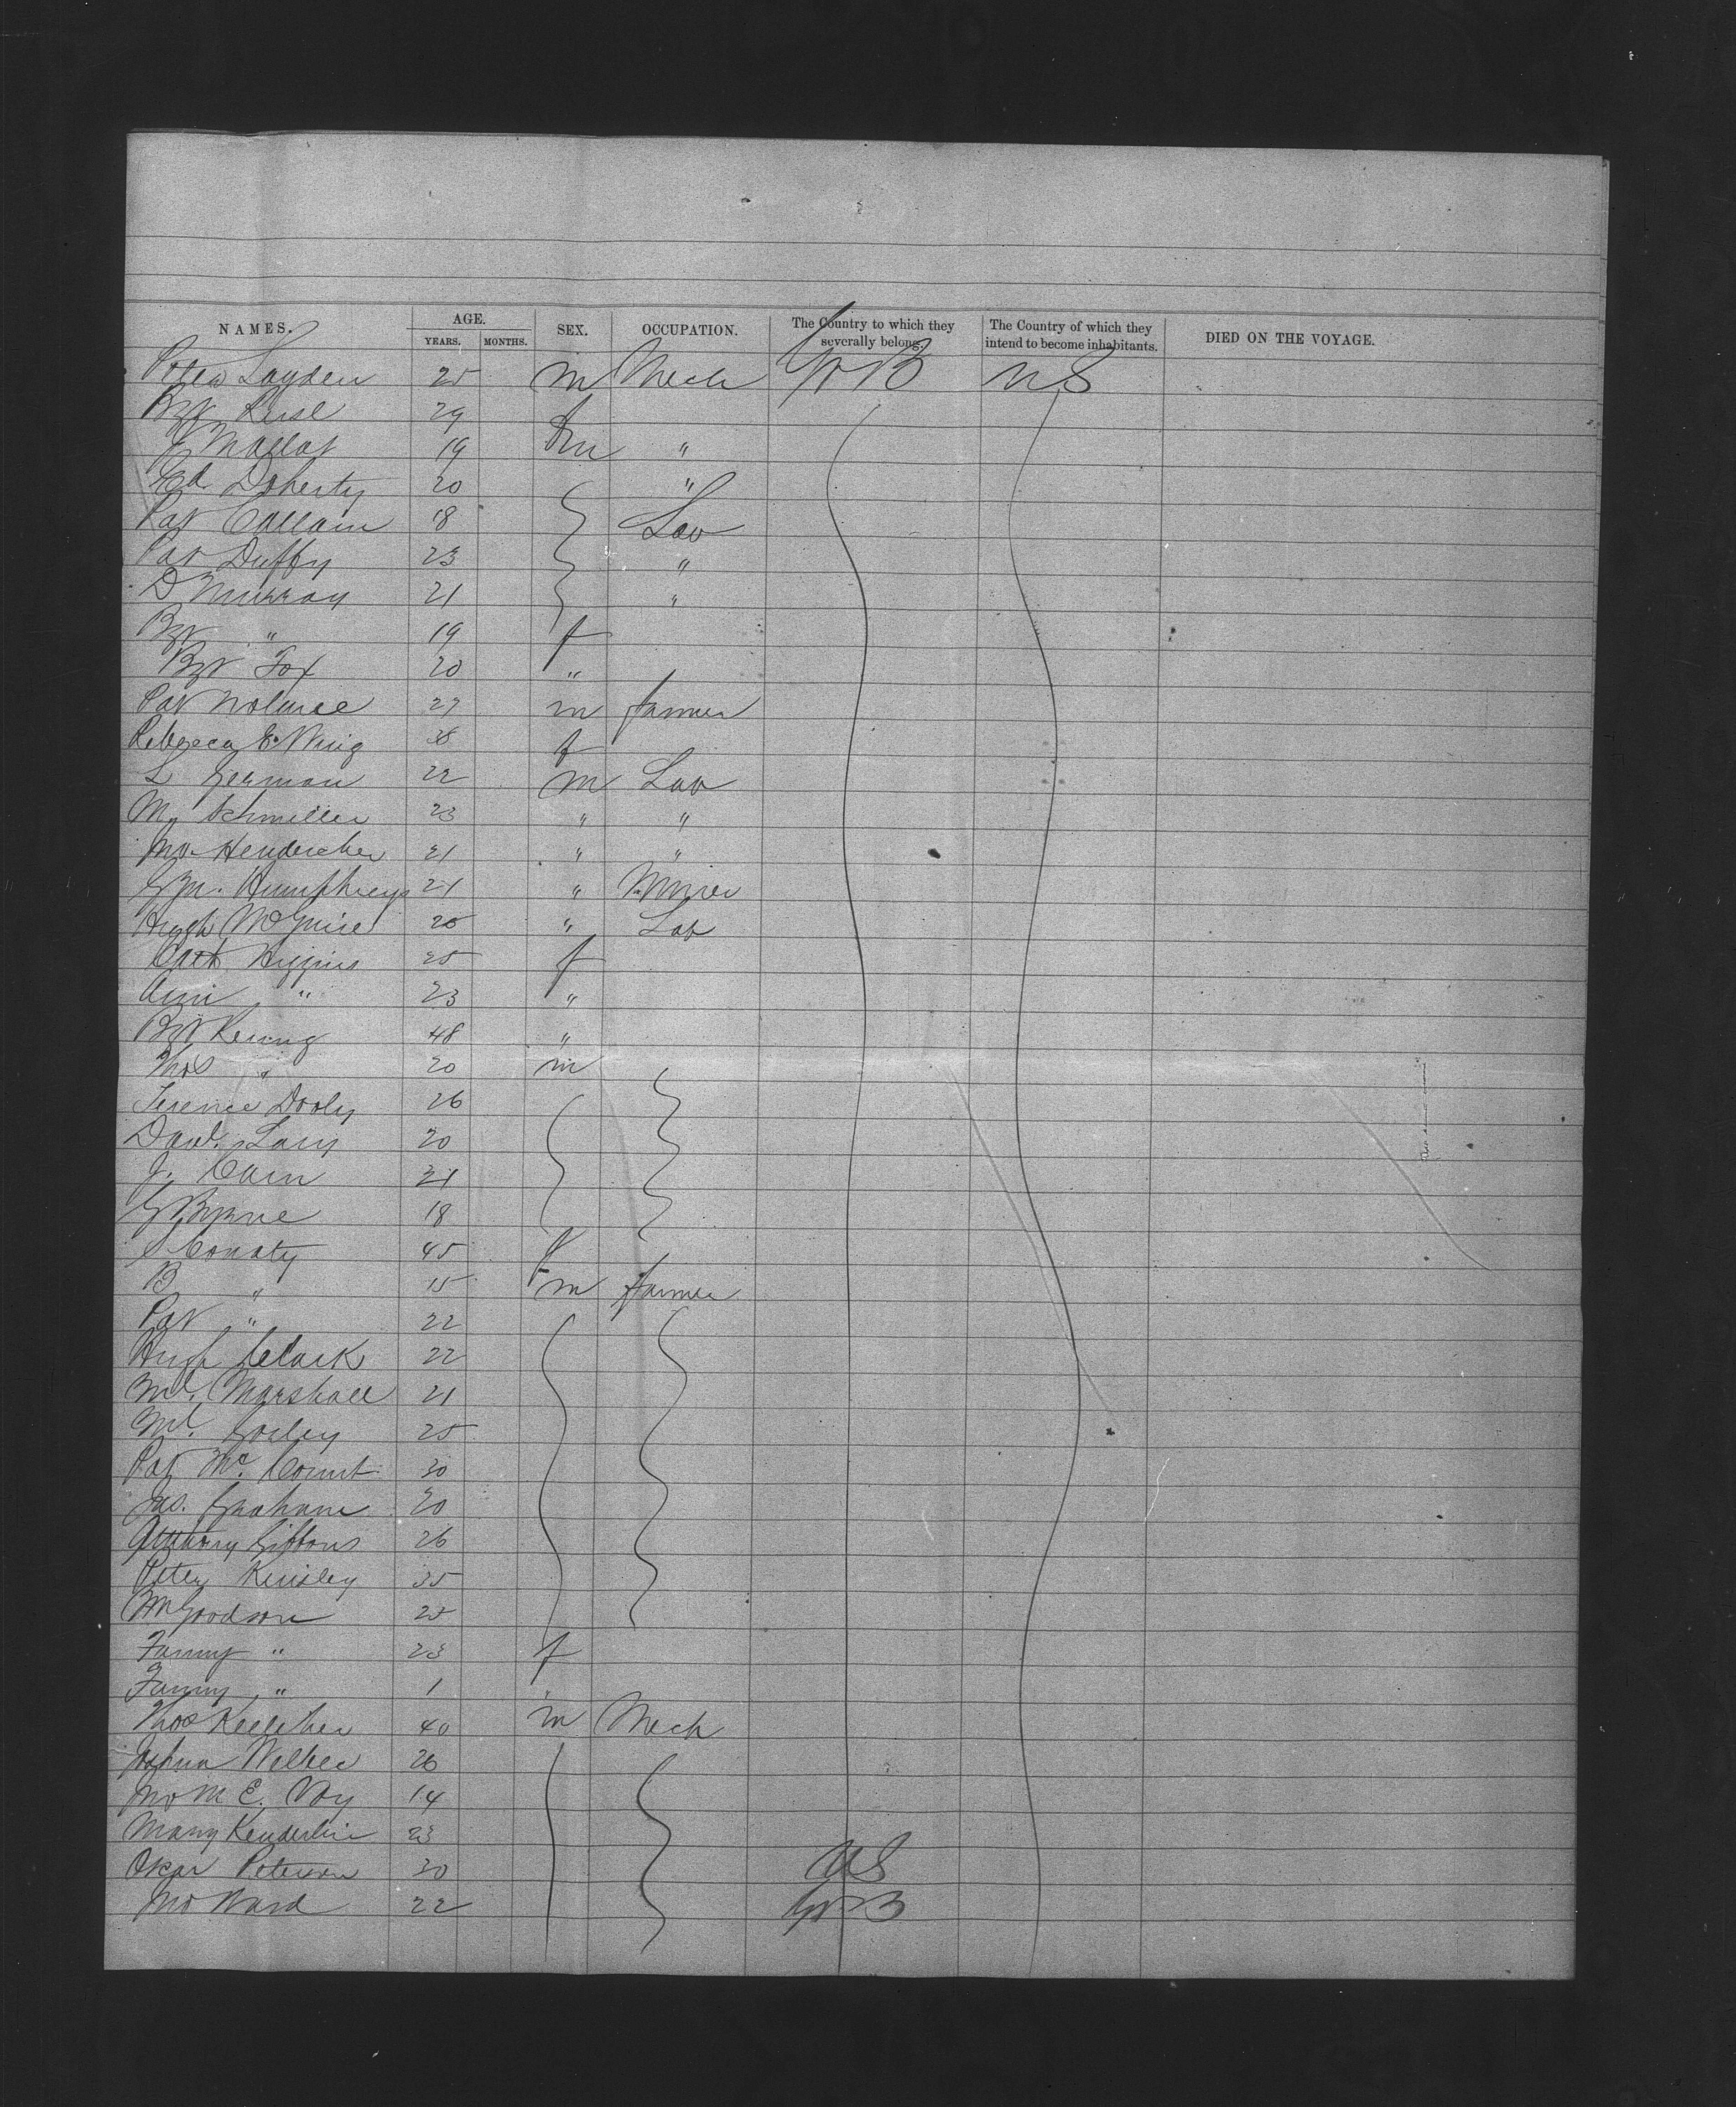 NAMES. AGE. SEX. OCCUPATION. The Country to which they severally belong. The Country of which they intend to become inhabitants. DIED ON THE VOYAGE.
YEARS. MONTHS.
Layden 25 m Mech Gr B US
29 f
19 m "
Ed. Doherty 20 "
Pat Callam 18 Lab
Pat Duffy 23 "
D Murray 21 "
Bgt " 19 f
Bgt Fox 20 "
Pat 27 m farmer
Rebecca E. 38 f
L German 22 m Lab
M. Schmiller 23 " "
Jno. 21 " "
Humphreys 21 " Miner
Hugh McGuire 20 " Lab
Cath Higgins 25 f
Ann " 23 "
Bgt 48 "
Thos " 20 m
Terence Dooly 26
Danl. Lary 20
J. Cain 21
G Byrne 18
S Conaty 45 f
B " 15 m farmer
Pat " 22
Hugh Clark 22
Ml. Marshall 21
Ml. 25
Pat Mc. Court 30
Jas. Graham 20
Anthony Gibbons 26
Peter Kinsley 35
Wm Goodson 25
Fanny " 23 f
Fanny " 1 "
Thos Kelleher 40 m Mech
Joshua 26
Jno M E. Voy 14
23
Oskar Peterson 30 US
Jno Ward 22 Gr B